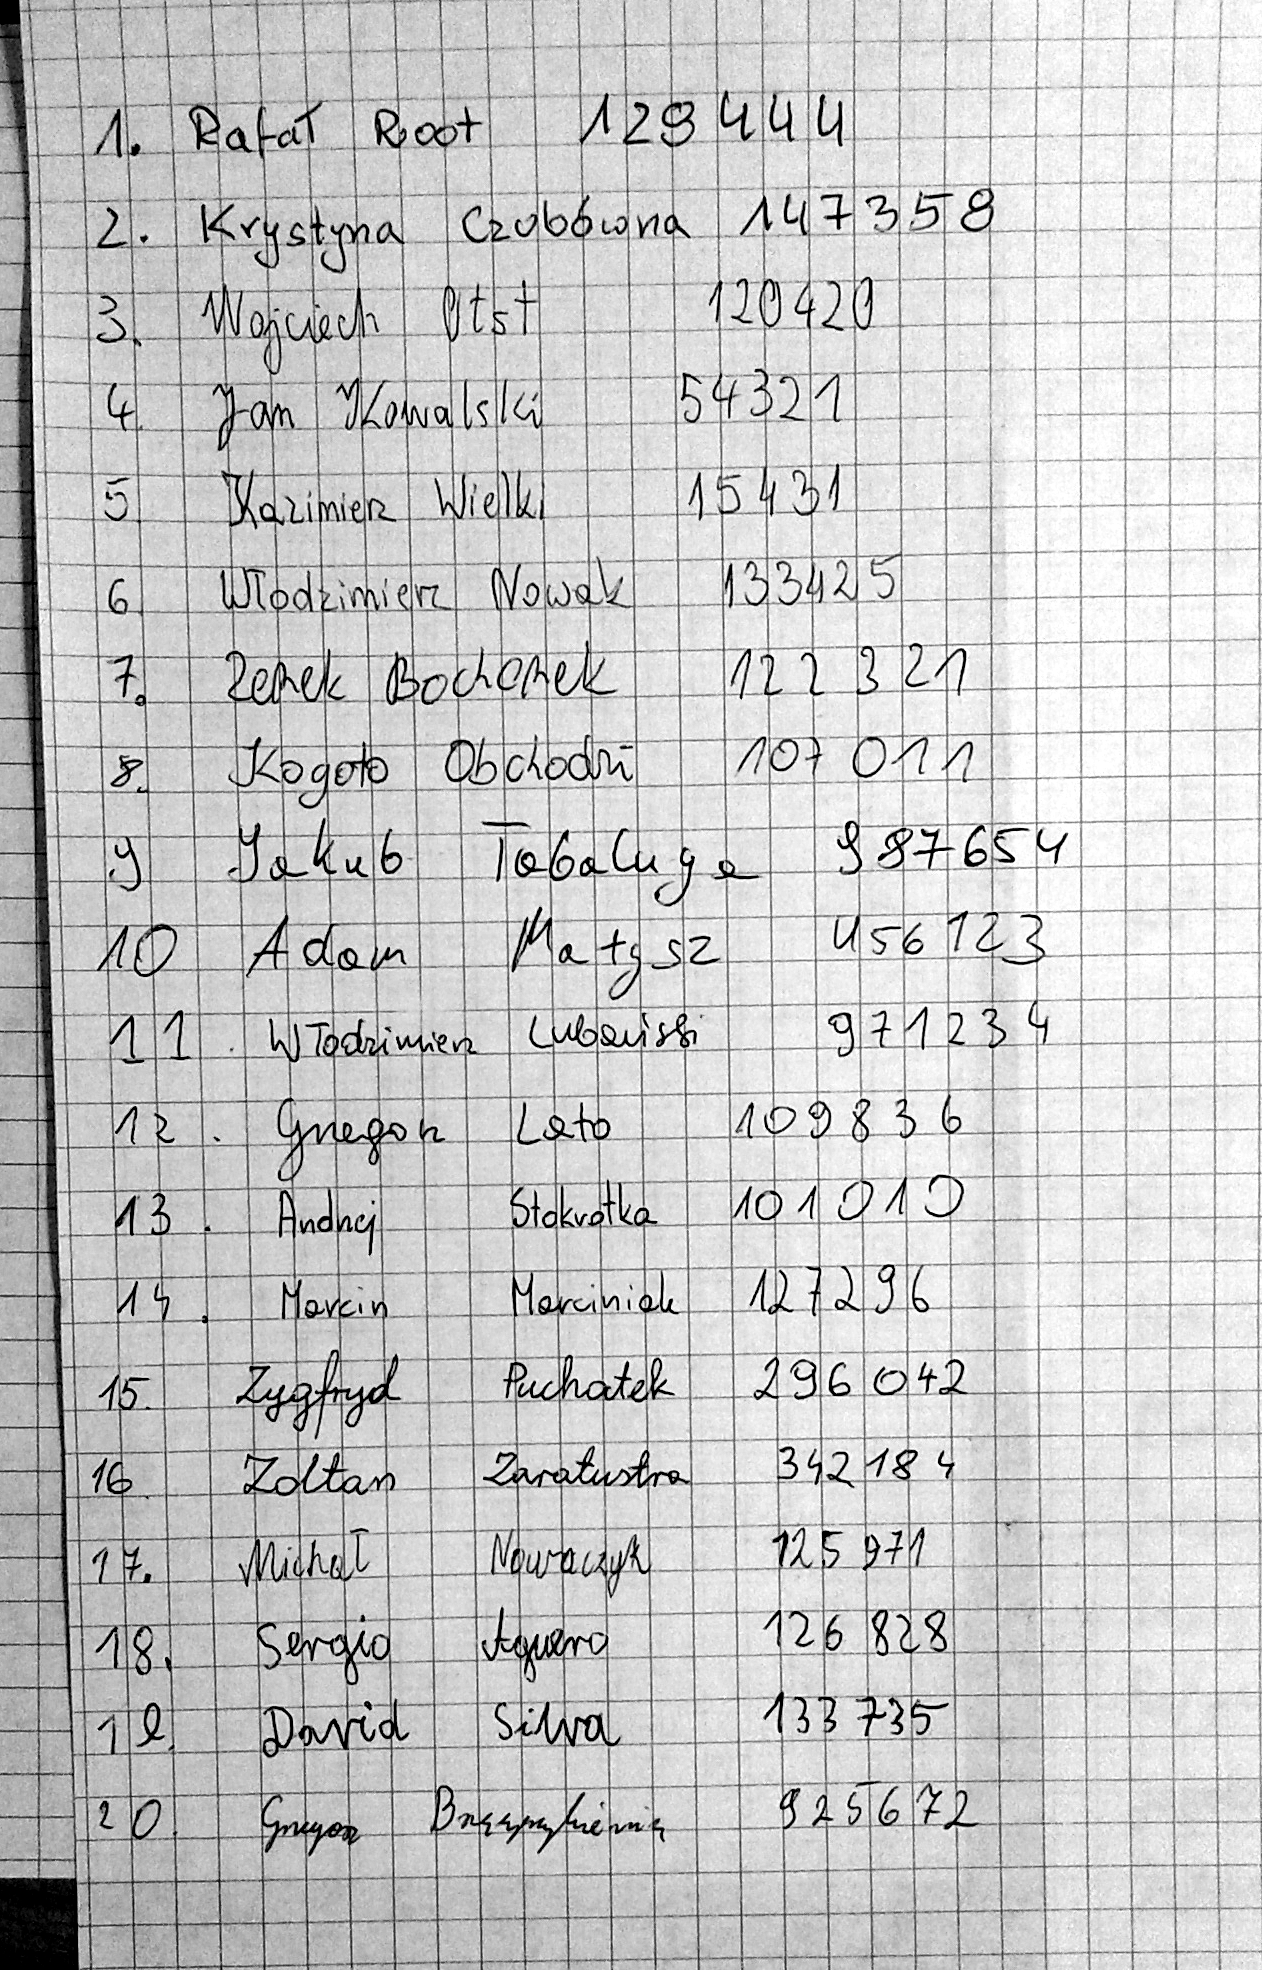 1. Rafał Root 129444
2. Krystyna Czubówna 147358
3. Wojciech Otst 120420
4. Jan Kowalski 54321
5. Kazimierz Wielki 15431
6. Włodzimierz Nowak 133425
7. Zenek Bochenek 122321
8. Kogoto Obchodzi 107011
9 Jakub Tabaluga 987654
10 Adam Małysz 456123
11. Włodzimierz Lubański 971234
12. Grzegorz Lato 109836
13. Andrzej Stokrotka 101010
14. Marcin Marciniak 127296
15. Zygfryd Puchatek 296042
16 Zoltan Zaratustra 342184
17. Michał Nowaczyk 125971
18. Sergio Aguero 126828
19. David Silva 133735
20. Grzegorz 925672